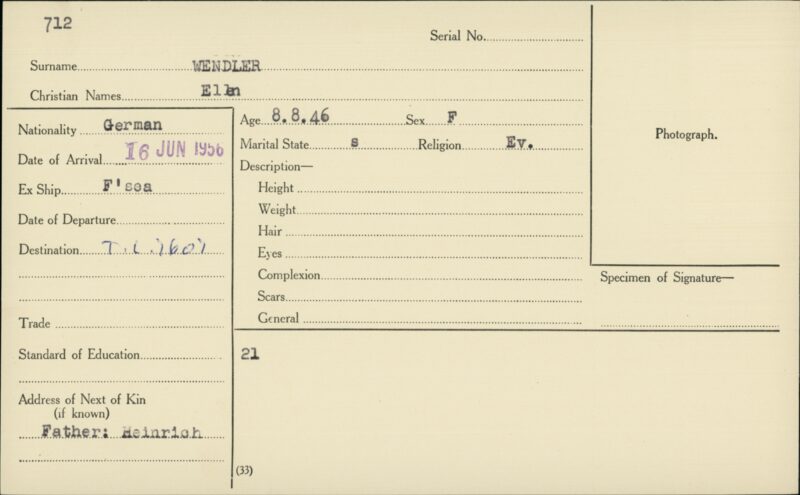 712
Serial No.
Surname WENDLER
Christian Names
Nationality German
Date of Arrival 16 JUN 1956
Ex Ship F'sea
Date of Departure
Destination
Trade
Standard of Education
Address of Next of Kin
(if known)
Father: Heinrich
Age 8.8.46 Sex F
Marital State s Religion Ev.
Description—
Height
Weight
Hair
Eyes
Complexion
Scars
General
21
(33)
Photograph.
Specimen of Signature—